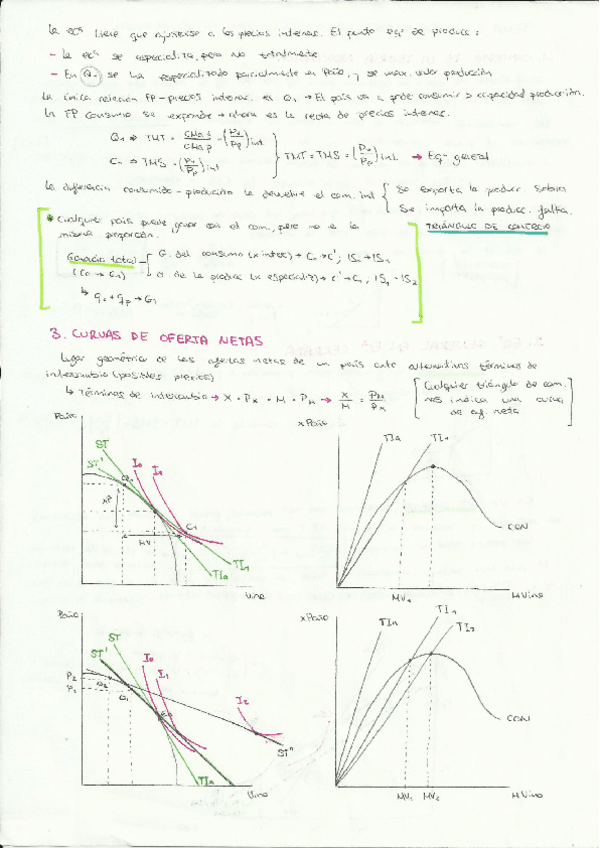 La ecª tiene que ajustarse a los precios internac. El punto eqº de produce:
- La ecª se especializa, pero no totalmente
- En Q₁ se ha especializado parcialmente en Paño, y se max. valor producción
La única relación FP - precios internac. es Q₁ → El país va a poder consumir > capacidad producción.
La FP consumo se expande → ahora es la recta de precios internac.
Q₁ ⇒ TMT = = (Pv/Pp) int
C₁ ⇒ TMS = (Pv/Pp) int
TMT = TMS = (Pv/Pp) int → Eqº general
La diferencia consumido - producido la devuelve el com. int
Se exporta la producc. sobra
Se importa la producc. falta.
TRIÁNGULO DE COMERCIO
* Cualquier país puede ganar con el com., pero no en la
misma proporción.
Ganancia total
(C₀ → C₁)
G. del consumo (x interc) → C₀ → C', IS₀ → IS₁
G. de la producc (x especializ) → C' → C₁, IS₁ → IS₂
↳ g₀ + gp → G₁
3. CURVAS DE OFERTA NETAS
Lugar geométrico de las ofertas netas de un país ante alternativos términos de
intercambio (posibles precios)
↳ Términos de intercambio → X · Px = M · PM → X/M = PM/Px
[Cualquier triángulo de com.
nos indica una curva
de of. neta]
Paño
ST
ST'
I₀
I₁
Q₁
XP
C₁
MV
TI₁
TI₀
Vino
x Paño
TI₀
TI₁
CON
MV₁
M Vino
Paño
ST
ST'
I₀
I₁
I₂
P₂
P₁
Q₂
Q₁
ST''
TI₀
Vino
x Paño
TI₀
TI₁
TI₂
CON
MV₁
MV₂
M Vino